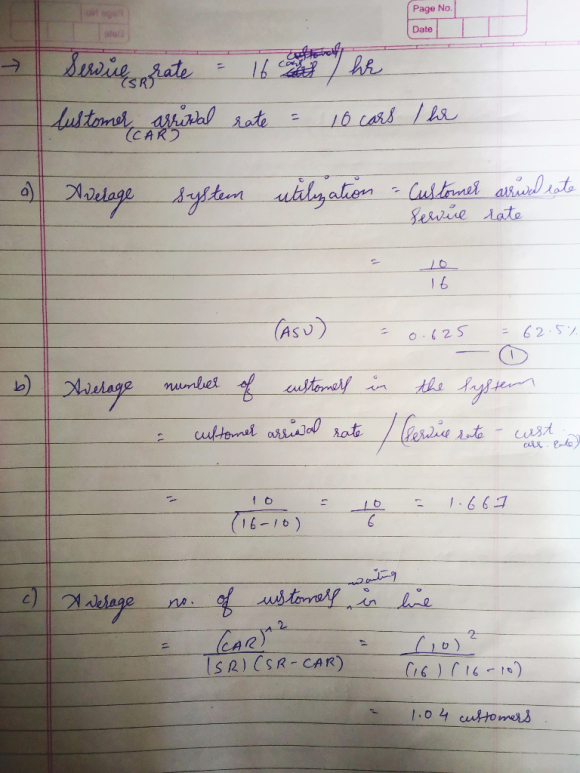 Page No.
Date
→ Service rate = 16 cars / hr
(SR)
Customer arrival rate = 10 cars / hr
(CAR)
a) Average system utilization = Customer arrival rate
Service rate
= 10
16
(ASU) = 0.625 = 62.5%
— 1
b) Average number of customers in the system
= customer arrival rate / (Service rate - cust.
arr. rate)
= 10 = 10 = 1.667
(16-10) 6
c) Average no. of customers waiting in line
= (CAR)^2 = (10)2
(SR) (SR-CAR) (16) (16-10)
= 1.04 customers